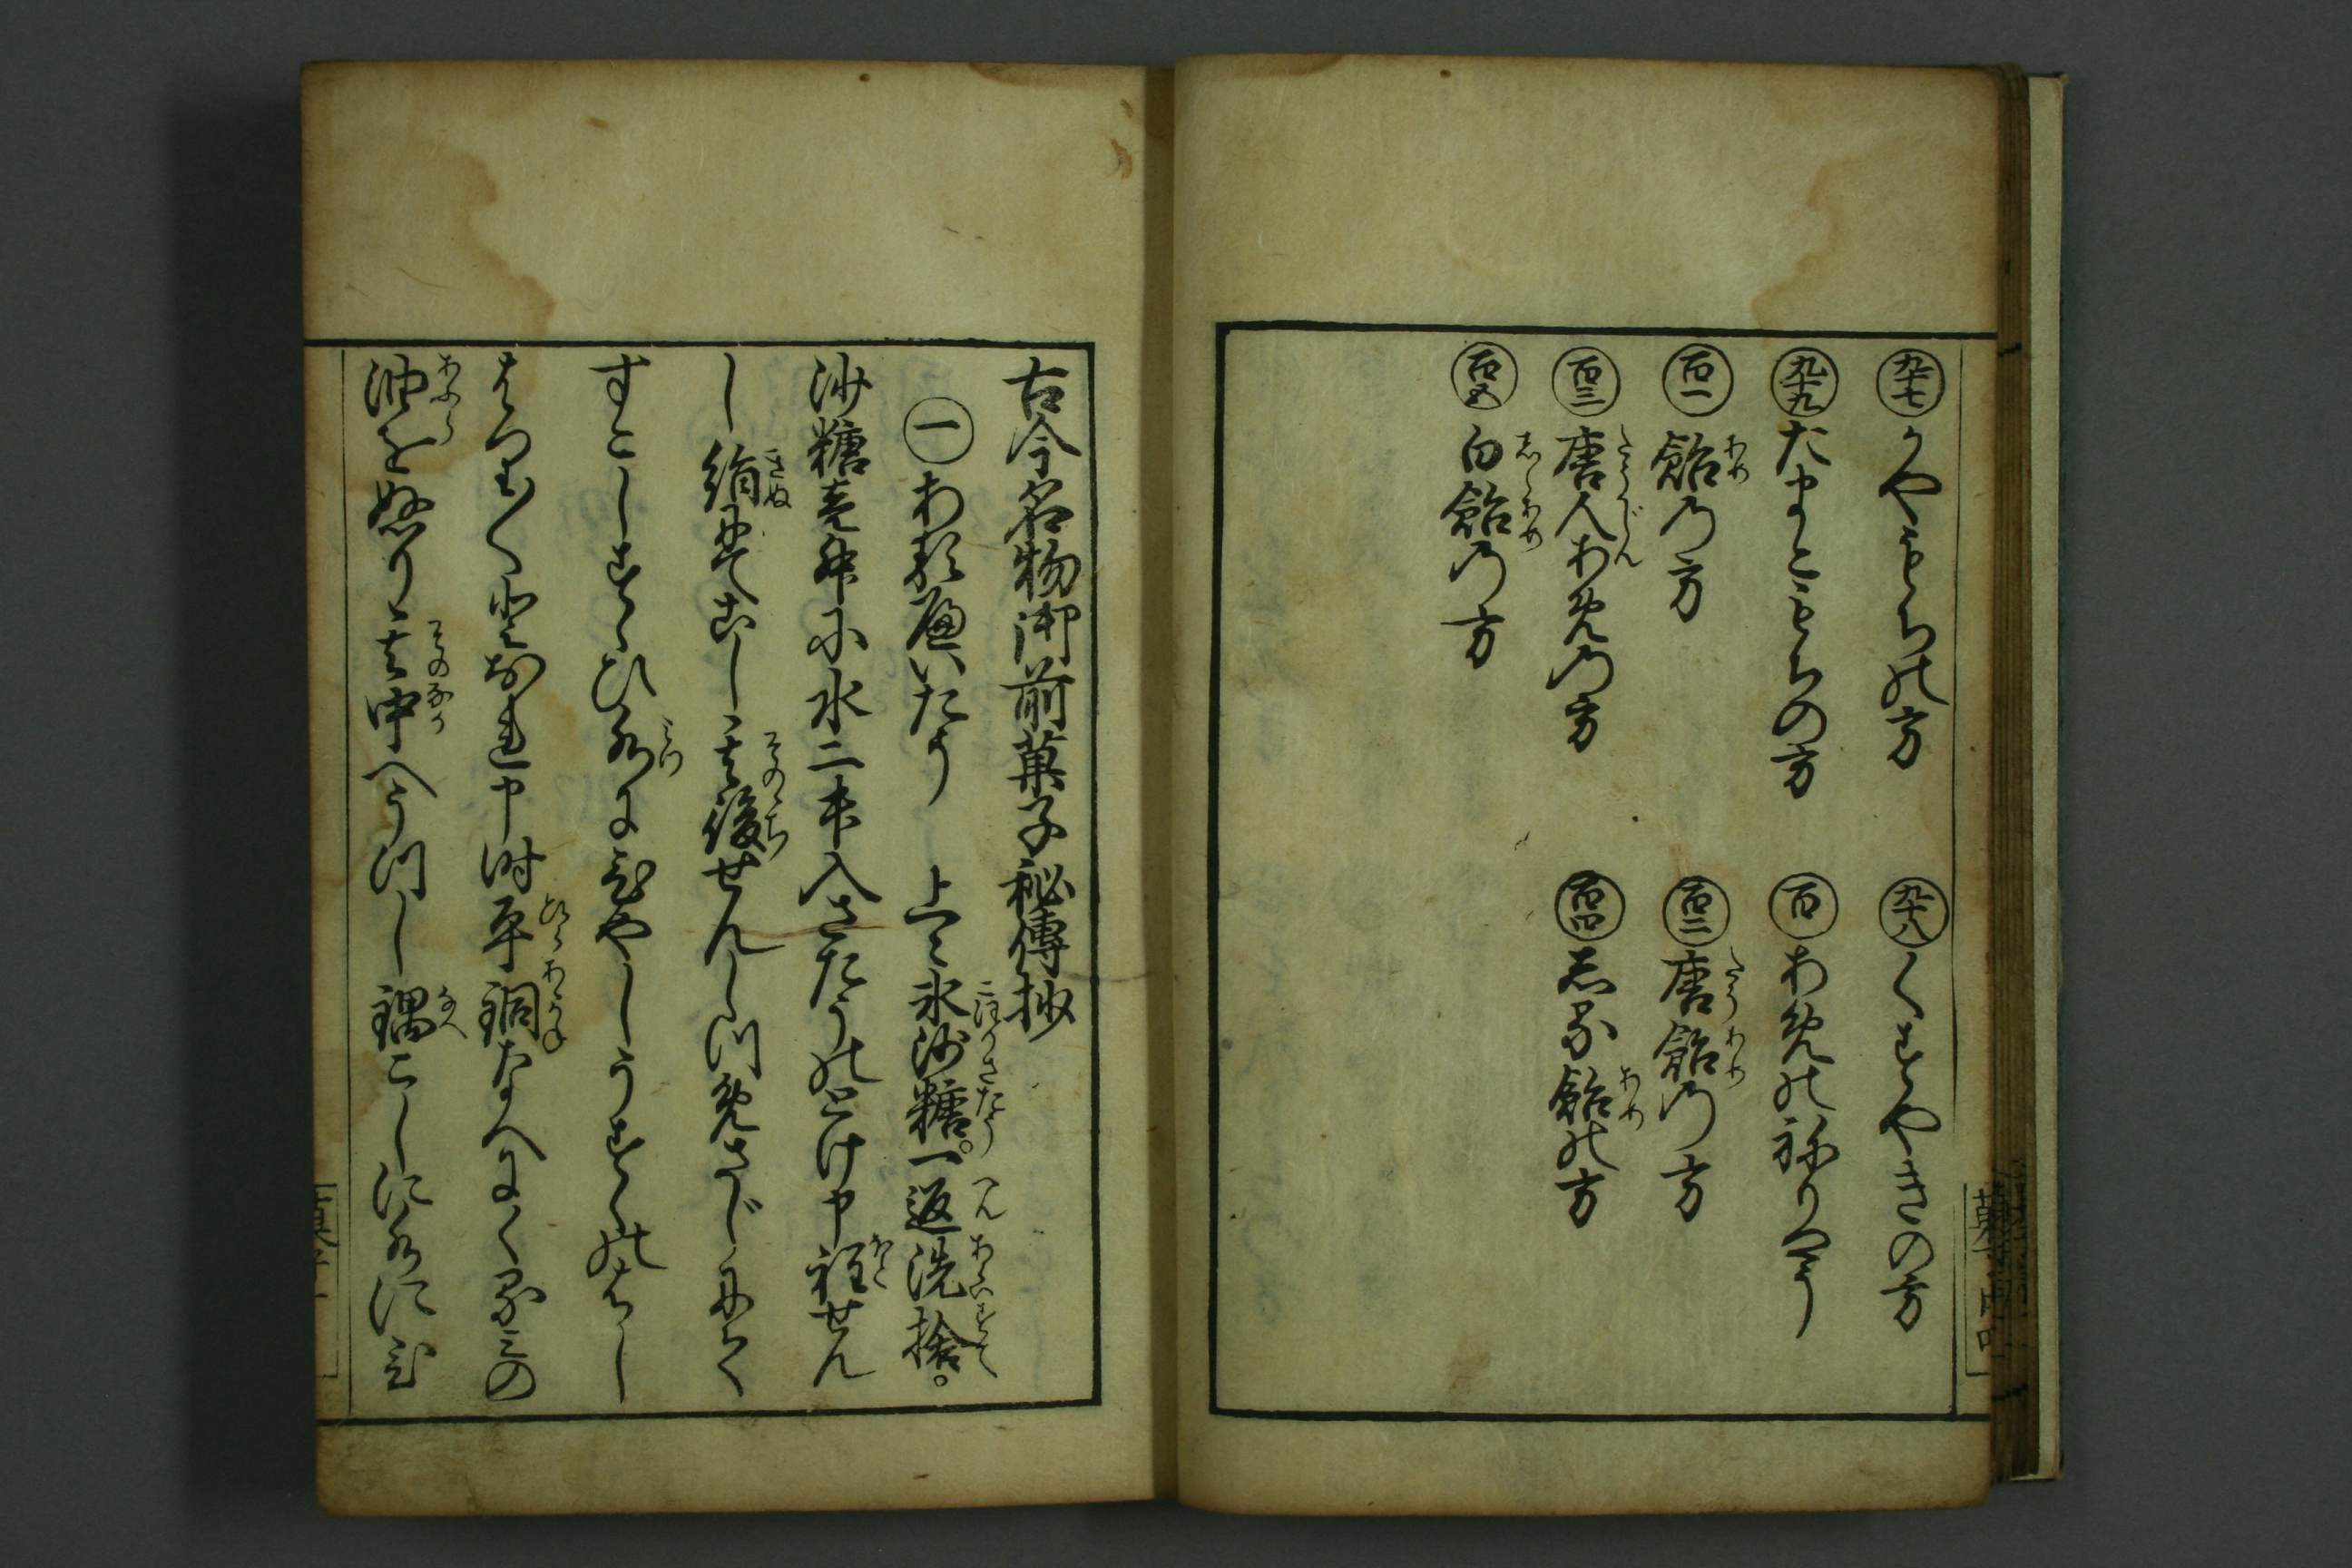 九十七 かやもちの方
九十八 くずやきの方
九十九 たまこもちの方
百 あめのねりやう
百一 飴の方
百二 唐飴の方
百三 唐人あめの方
百四 志ろ飴の方
百五 白飴の方
古今名物御前菓子秘傳抄
一 あるへいたう 上々氷沙糖。一返洗捨。
沙糖壱升に水二升入さたうのとけ申程せん
し絹にてこし其後せんじつめさじにてく
すこしすくひ水にひやしうすくのはし
はり〳〵と
油をぬり其中へうつし鍋こしに水にひ